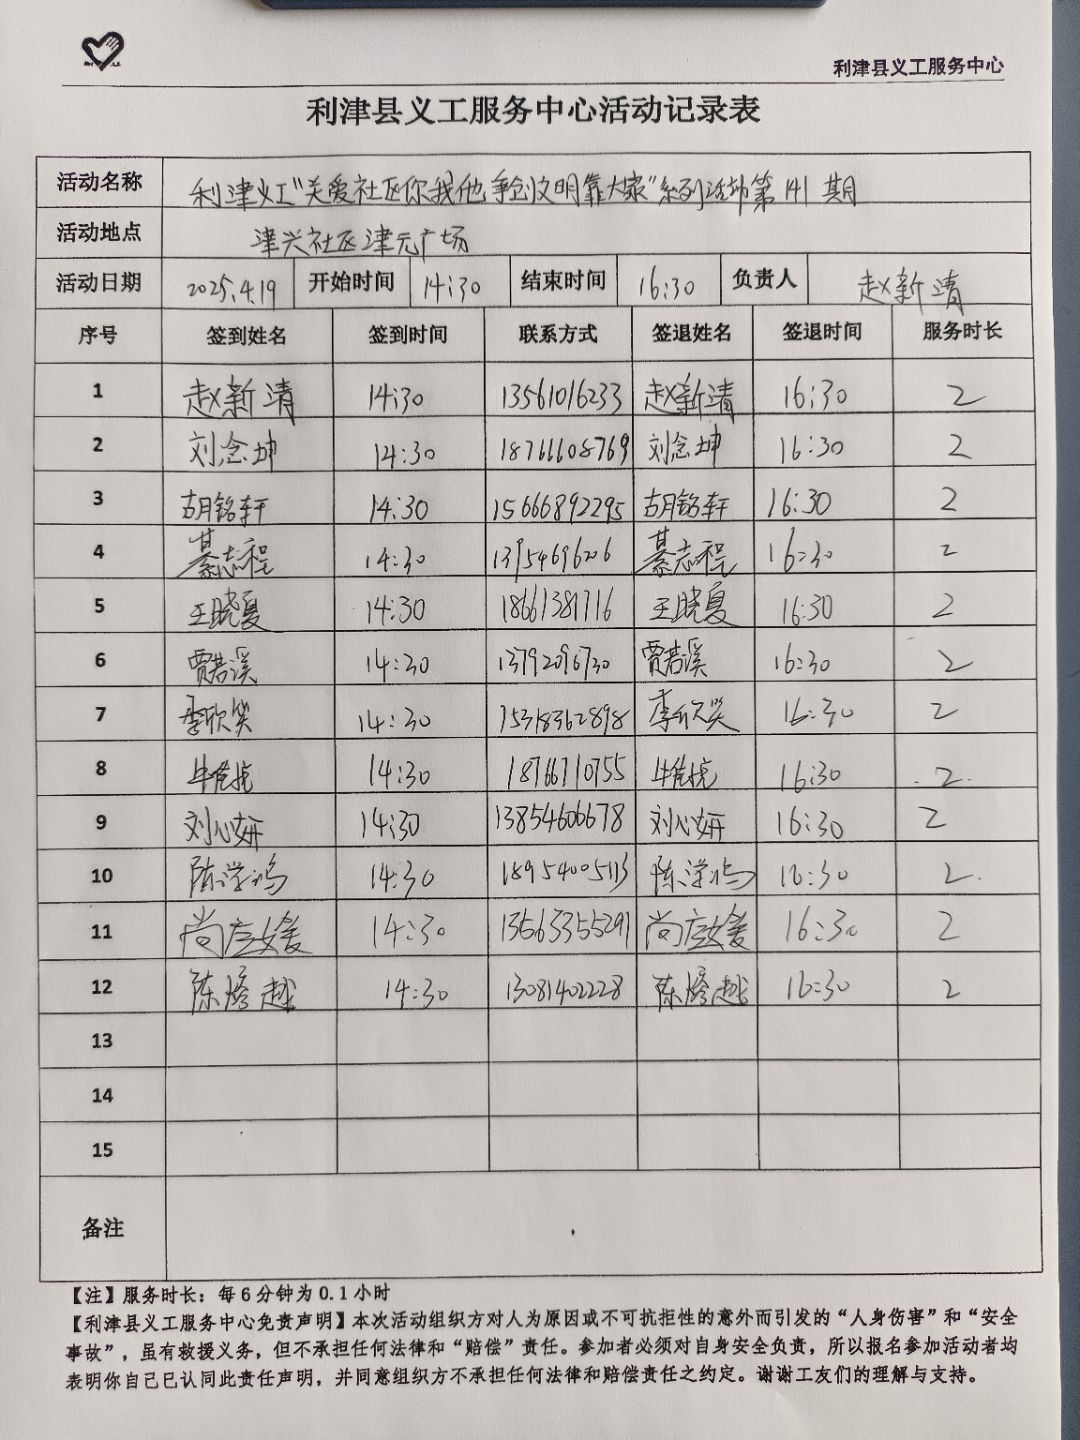 利津县义工服务中心
利津县义工服务中心活动记录表
活动名称 利津义工“关爱社区你我他 争创文明靠大家”系列活动第141期
活动地点 津兴社区津元广场
活动日期 2025.4.19 开始时间 14:30 结束时间 16:30 负责人 赵新清
序号 签到姓名 签到时间 联系方式 签退姓名 签退时间 服务时长
1 赵新清 14:30 13561016233 赵新清 16:30 2
2 刘念坤 14:30 18766608769 刘念坤 16:30 2
3 胡铭轩 14:30 15666892295 胡铭轩 16:30 2
4 綦志程 14:30 13954696206 綦志程 16:30 2
5 王晓夏 14:30 18661381716 王晓夏 16:30 2
6 贾若溪 14:30 13792096730 贾若溪 16:30 2
7 李欣笑 14:30 15318362898 李欣笑 16:30 2
8 14:30 18766710755 16:30 2
9 刘心妍 14:30 13854606678 刘心妍 16:30 2
10 14:30 18954005113 16:30 2
11 14:30 13563355291 16:30 2
12 14:30 13081402228 16:30 2
13
14
15
备注
【注】服务时长：每6分钟为0.1小时
【利津县义工服务中心免责声明】本次活动组织方对人为原因或不可抗拒性的意外而引发的“人身伤害”和“安全
事故”，虽有救援义务，但不承担任何法律和“赔偿”责任。参加者必须对自身安全负责，所以报名参加活动者均
表明你自己已认同此责任声明，并同意组织方不承担任何法律和赔偿责任之约定。谢谢工友们的理解与支持。